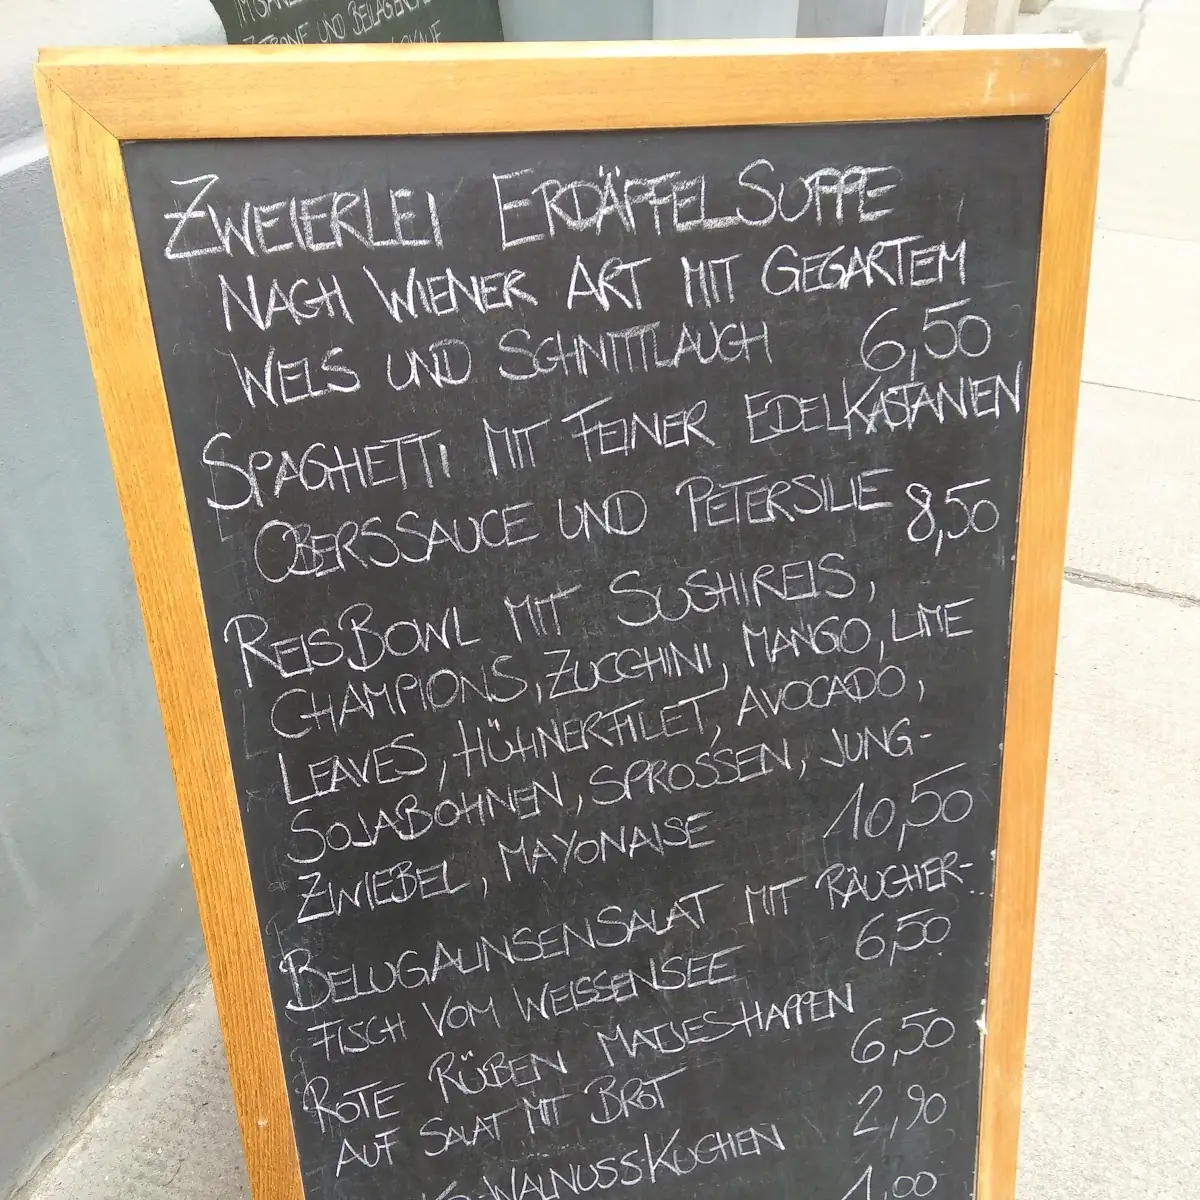 ZITRONE UND BEILAGENSALAT
ZWEIERLEI ERDÄPFELSUPPE
NACH WIENER ART MIT GEGARTEM
WELS UND SCHNITTLAUCH 6,50
SPAGHETTI MIT FEINER EDELKASTANIEN
OBERSSAUCE UND PETERSILIE 8,50
REISBOWL MIT SUSHIREIS,
CHAMPIONS, ZUCCHINI, MANGO, LIME
LEAVES, HÜHNERFILET, AVOCADO,
SOJABOHNEN, SPROSSEN, JUNG-
ZWIEBEL, MAYONAISE 10,50
BELUGALINSENSALAT MIT RÄUCHER-
FISCH VOM WEISSENSEE 6,50
ROTE RÜBEN MATJESHAPPEN
AUF SALAT MIT BROT 6,50
WALNUSSKUCHEN 2,90
1,00